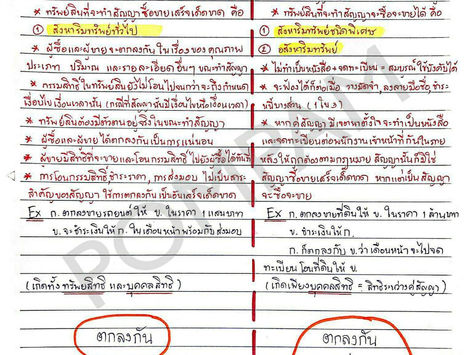 * ทรัพย์สินที่ทำสัญญาซื้อขายเสร็จเด็ดขาด คือ
① สังหาริมทรัพย์ทั่วไป
* ผู้ซื้อและผู้ขาย จะตกลงกัน ในเรื่องของ คุณภาพ
ประเภท ปริมาณ และรายละเอียดอื่นๆ ขณะทำสัญญา
* กรรมสิทธิ์ในทรัพย์สินยังไม่โอนไปจนกว่าจะถึงกำหนด
เงื่อนไขเงื่อนเวลานั้น (กรณีที่สัญญานั้นมีเงื่อนไขหรือเงื่อนเวลา)
* ทรัพย์สินต้องมีตัวตนอยู่จริงในขณะทำสัญญา
* ผู้ซื้อและผู้ขาย ได้ตกลงกันเป็นการแน่นอน
* ผู้ขายมีสิทธิที่จะขายและโอนกรรมสิทธิ์ไปยังผู้ซื้อได้ทันที
* การโอนกรรมสิทธิ์ ชำระราคา, การส่งมอบ ไม่เป็นสาระ
สำคัญของสัญญา ใช้การตกลงกัน เป็นอันเสร็จเด็ดขาด
Ex ก. ตกลงขายรถยนต์ให้ ข. ในราคา 1 แสนบาท
ข. จะชำระเงินให้ ก. ในเดือนหน้า พร้อมกับส่งมอบ
(เกิดทั้งทรัพยสิทธิ และบุคคลสิทธิ)
ตกลงกัน
* ทรัพย์สินที่จะทำสัญญาจะซื้อจะขายได้ คือ
① สังหาริมทรัพย์ชนิดพิเศษ
② อสังหาริมทรัพย์
* ไม่ทำเป็นหนังสือ + จดทะเบียน = สมบูรณ์ ใช้บังคับได้
* จะฟ้องได้ก็ต่อเมื่อ วางมัดจำ, ลงลายมือชื่อ, ชำระ
หนี้บางส่วน
* หากคู่สัญญา มีเจตนาตั้งใจ จะทำเป็นหนังสือ
และจดทะเบียนต่อพนักงานเจ้าหน้าที่ กันในภาย
หลังให้ถูกต้องตามกฎหมาย สัญญานั้นก็มิใช่
สัญญาซื้อขายเสร็จเด็ดขาด หากแต่เป็นสัญญา
จะซื้อจะขาย
Ex ก. ตกลงขายที่ดินให้ ข. ในราคา 1 ล้านบาท
ข. ชำระเงินให้ ก.
ก. ก็ตกลงกับ ข. ว่าเดือนหน้าจะไปจด
ทะเบียน โอนที่ดินให้ ข.
(เกิดเพียงบุคคลสิทธิ = สิทธิระหว่างคู่สัญญา)
ตกลงกัน